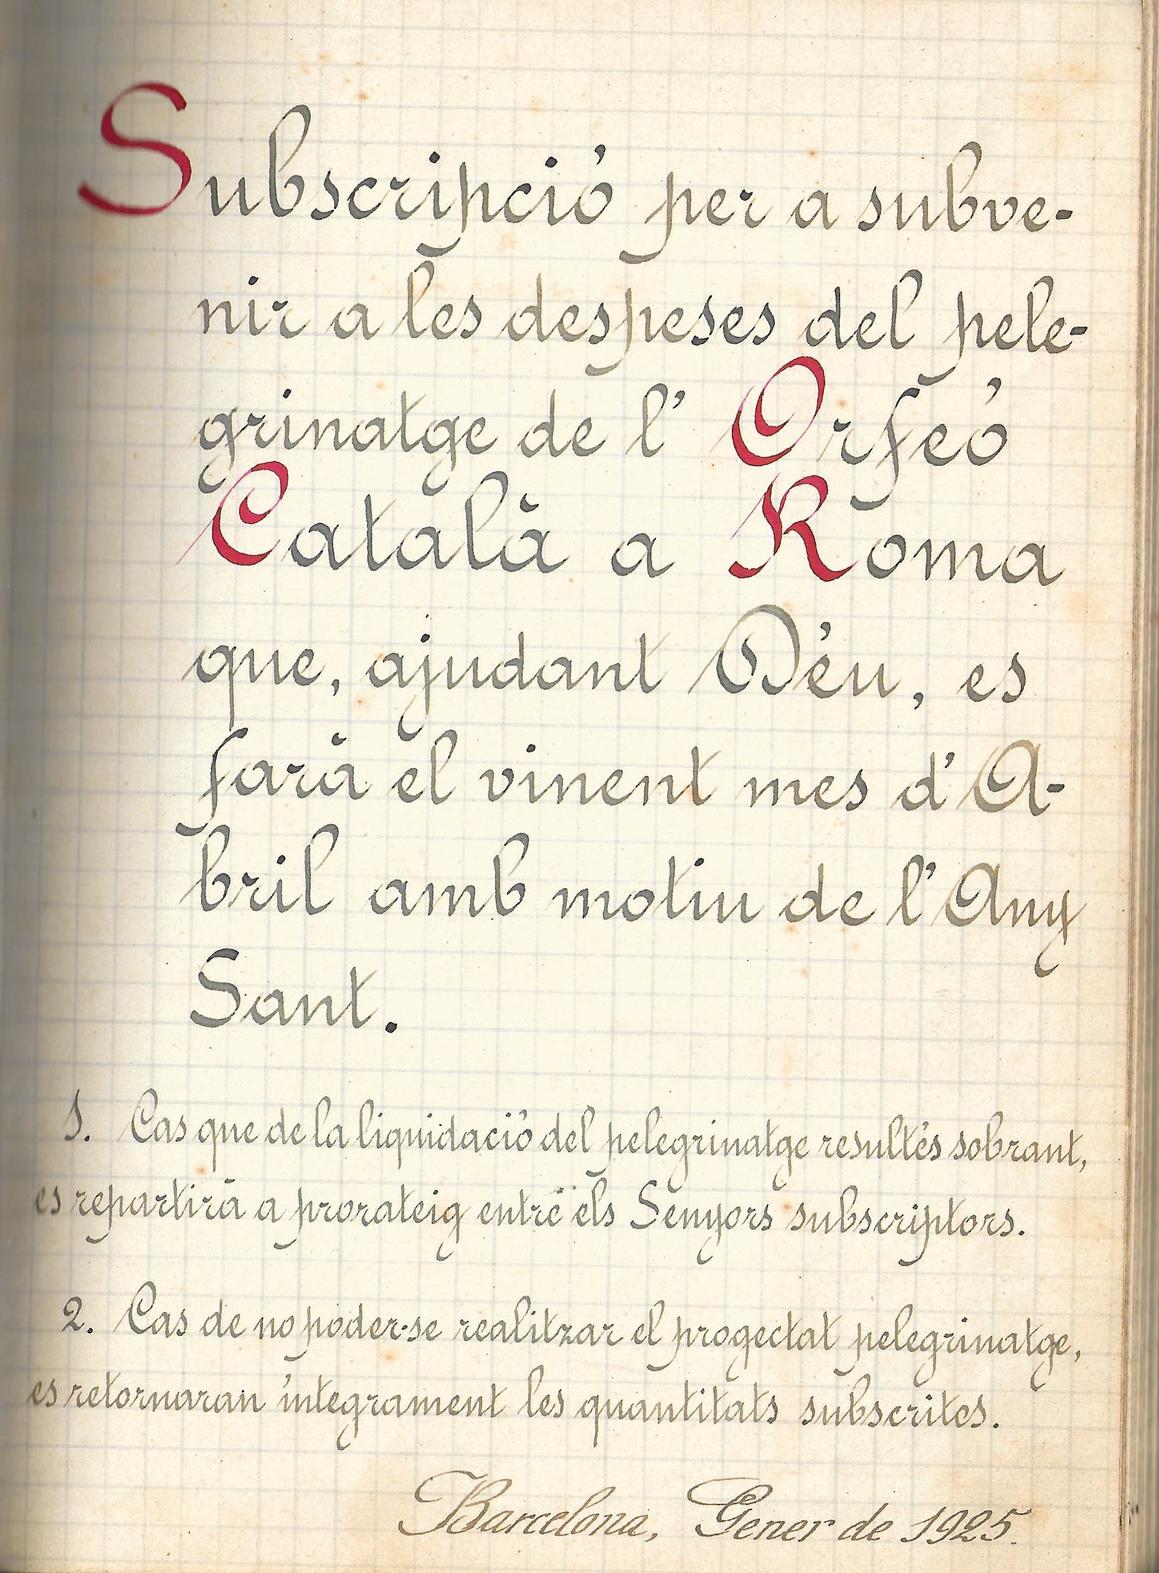 Subscripció per a subve-
nir a les despeses del pele-
grinatge de l' Orfeó
Català a Roma
que, ajudant Déu, es
farà el vinent mes d'A-
bril amb motiu de l'Any
Sant.
1. Cas que de la liquidació del pelegrinatge resultés sobrant,
es repartirà a prorateig entre els Senyors subscriptors.
2. Cas de no poder-se realitzar el progectat pelegrinatge,
es retornaran íntegrament les quantitats subscrites.
Barcelona, Gener de 1925.